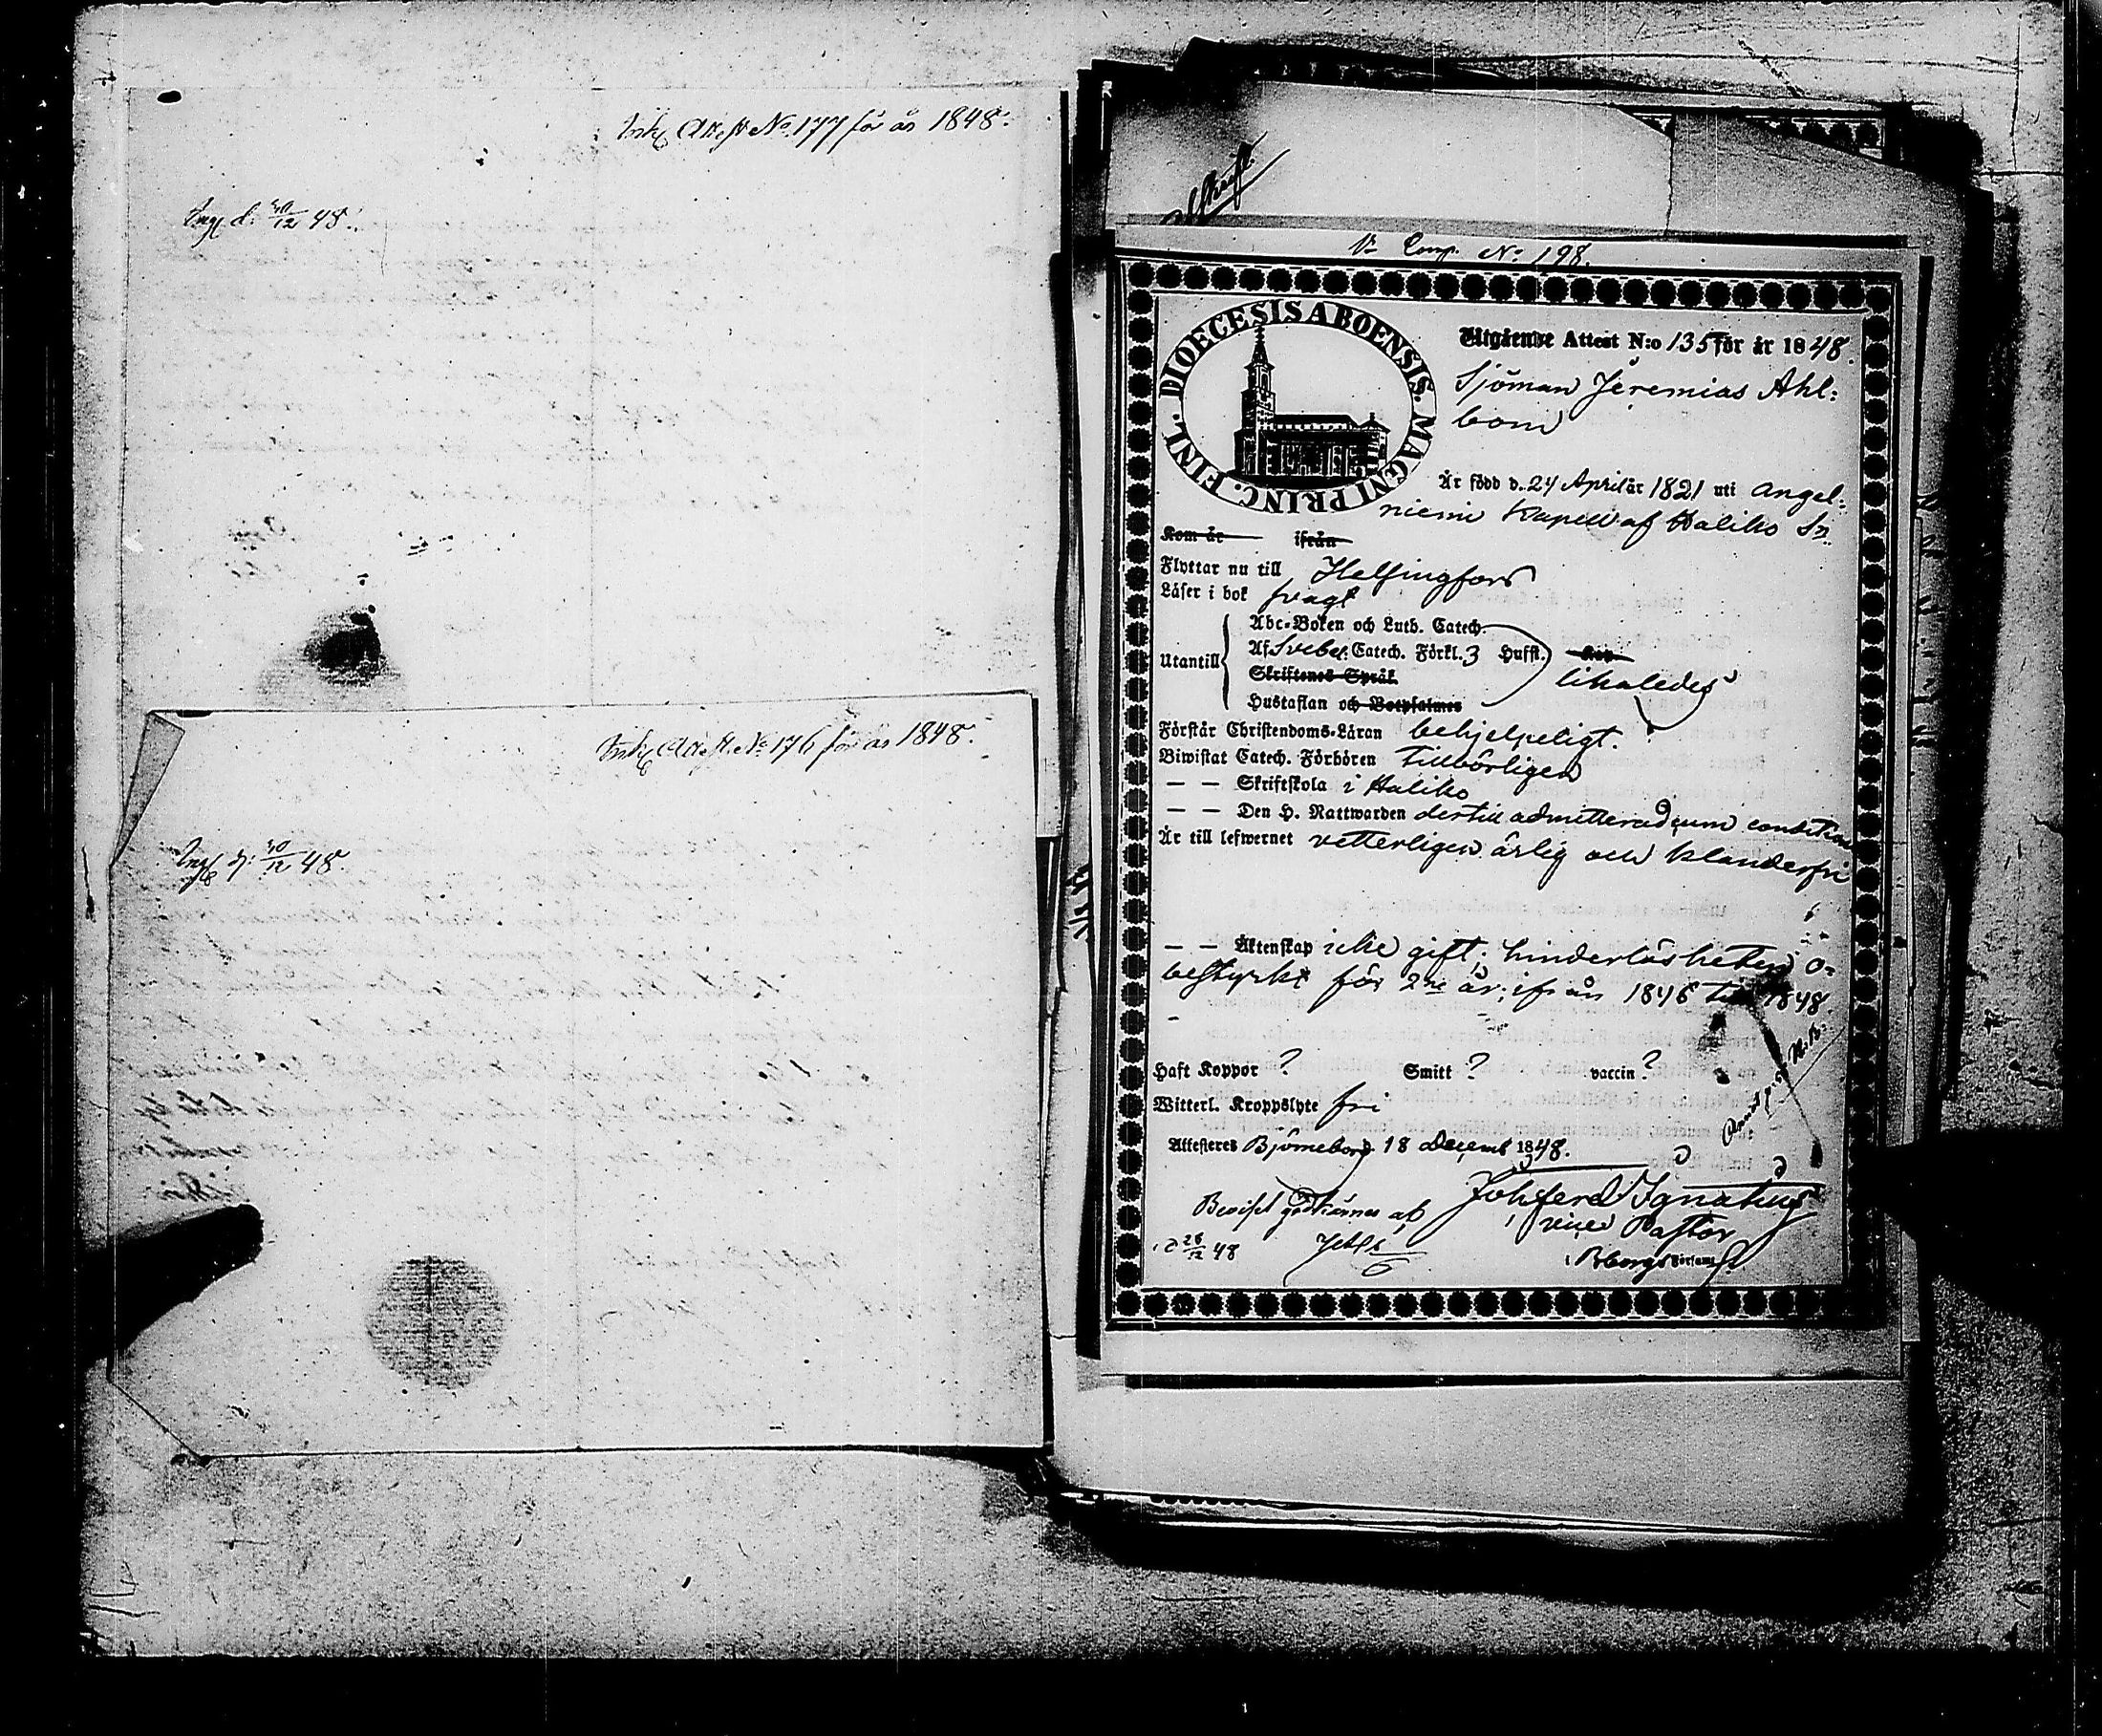 Attest No. 177 för år 1848.
d. 30/12 48.
Attest. No. 176 för år 1848.
d. 30/12 48.
No. 198.
DIOECESIS ABOENSIS. MAGNI PRINC. FINL.
Utgående Attest N:o 135 för år 1848.
Sjöman Jeremias Ahl-
bom
Är född d. 24 April år 1821 uti Angel-
niemi Kapell af Haliko Sn.
Kom år ifrån
Flyttar nu till Helsingfors
Läser i bok svagt
Utantill
Abc-Boken och Luth. Catech.
Af Svebel. Catech. Förkl. 3 Hufst.
Skriftenes Språk
likaledes
Hustaflan och Botpsalmer
Förstår Christendoms-Läran behjelpeligt.
Biwistat Catech. Förhören tillbörligen
— — Skriftskola i Haliko
— — Den H. Nattwarden dertill admitterad, cum condition
Är till lefwernet vetterligen ärlig och klanderfri
— — Äktenskap icke gift; hinderlösheten o-
bestyrkt för 2ne år, ifrån 1846 till 1848.
Haft Koppor ? Smitt ? vaccin ?
Witterl. Kroppslyte fri
Attesteras Björneborg 18 Decemb 1848.
Joh Ferd Ignatius
vice Pastor
i Bborgs Församl.
Beviset godkännes af
d 28/12 48